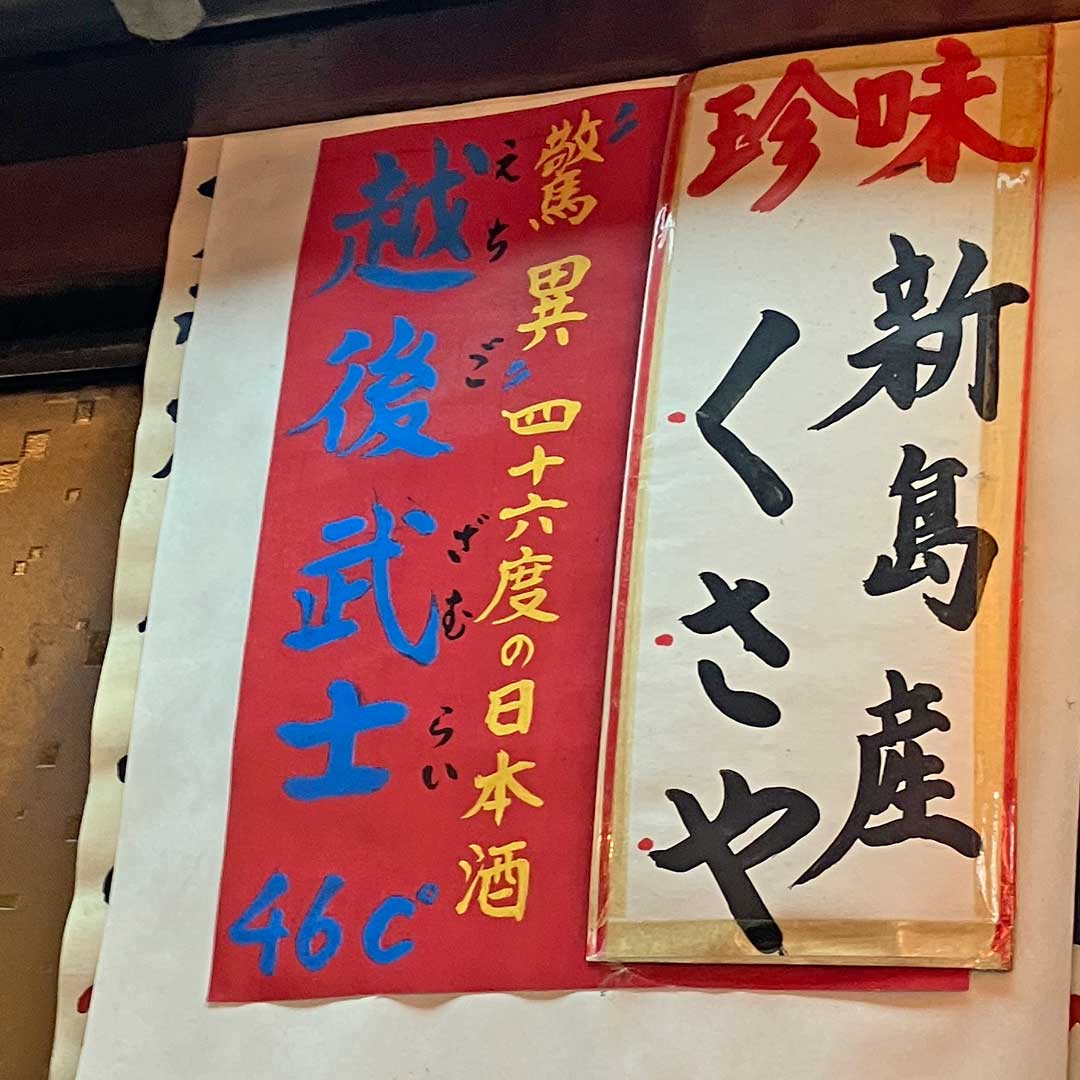 珍味
新島産
くさや
驚異 四十六度の日本酒
えちござむらい
越後武士
46C°